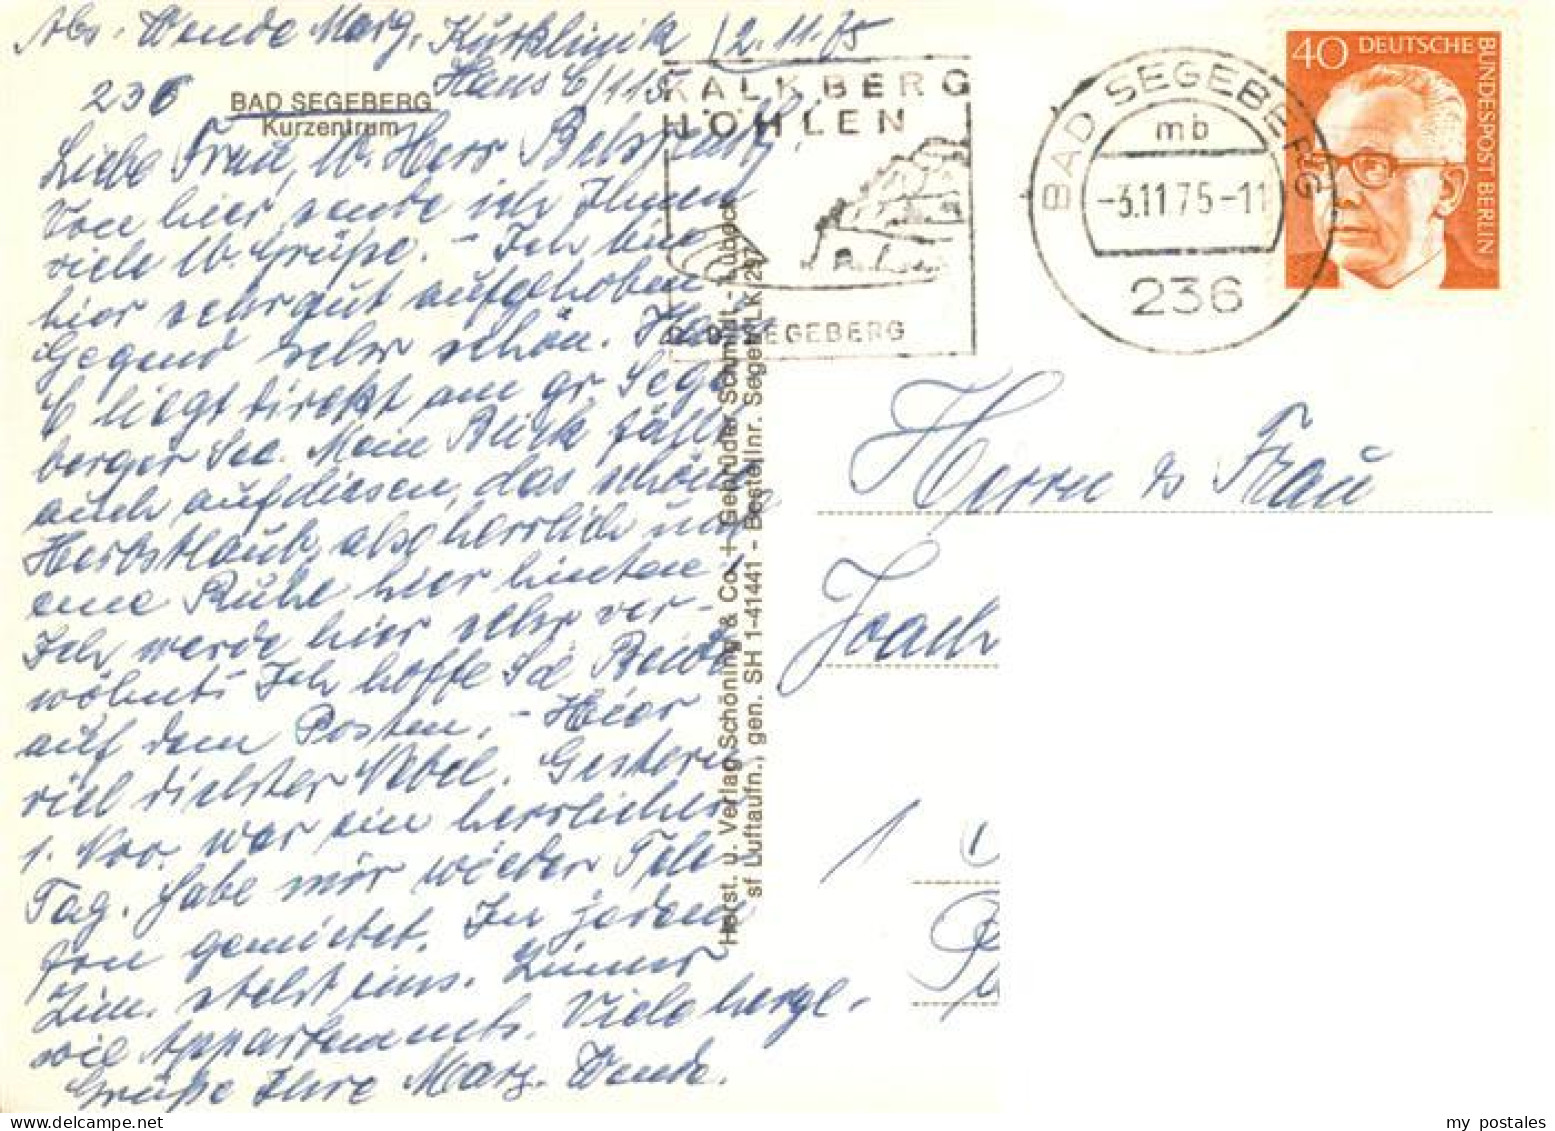 Abs. Wende Marg. Kurklinik 2.11.75
Haus E/115
236 BAD SEGEBERG
Kurzentrum
Liebe Frau, w. Herr
Von hier sende ich Ihnen
viele lb. Grüße. - Ich bin
hier sehr gut aufgehoben
Gegend sehr schön. Haus
E liegt direkt am gr. Sege
berger See. Mein Blick fällt
auch auf diesen, das schöne
Herbstlaub, also herrlich und
eine Ruhe hier hinten.
Ich werde hier sehr ver-
wöhnt. Ich hoffe Sie Beide
auf dem Posten. - Hier
viel dichter Nebel. Gestern
1. Nov. war ein herrlicher
Tag. Habe mir wieder Tele
fon gemietet. In jedem
Zim. steht eins. Zimmer
wie Appartments. Viele herzl.
Grüße Ihre Marg. Wende.
Horst. u. Verlag Schöning & Co. + Gebrüder Schmidt - Lübeck
sf Luftaufn., gen. SH 1-41441 - Bestellnr. Sege
KALKBERG
HÖHLEN
BAD SEGEBERG
BAD SEGEBERG
mb
-3.11.75-11
236
40 DEUTSCHE BUNDESPOST BERLIN
Herrn & Frau
Joach
1
my postales